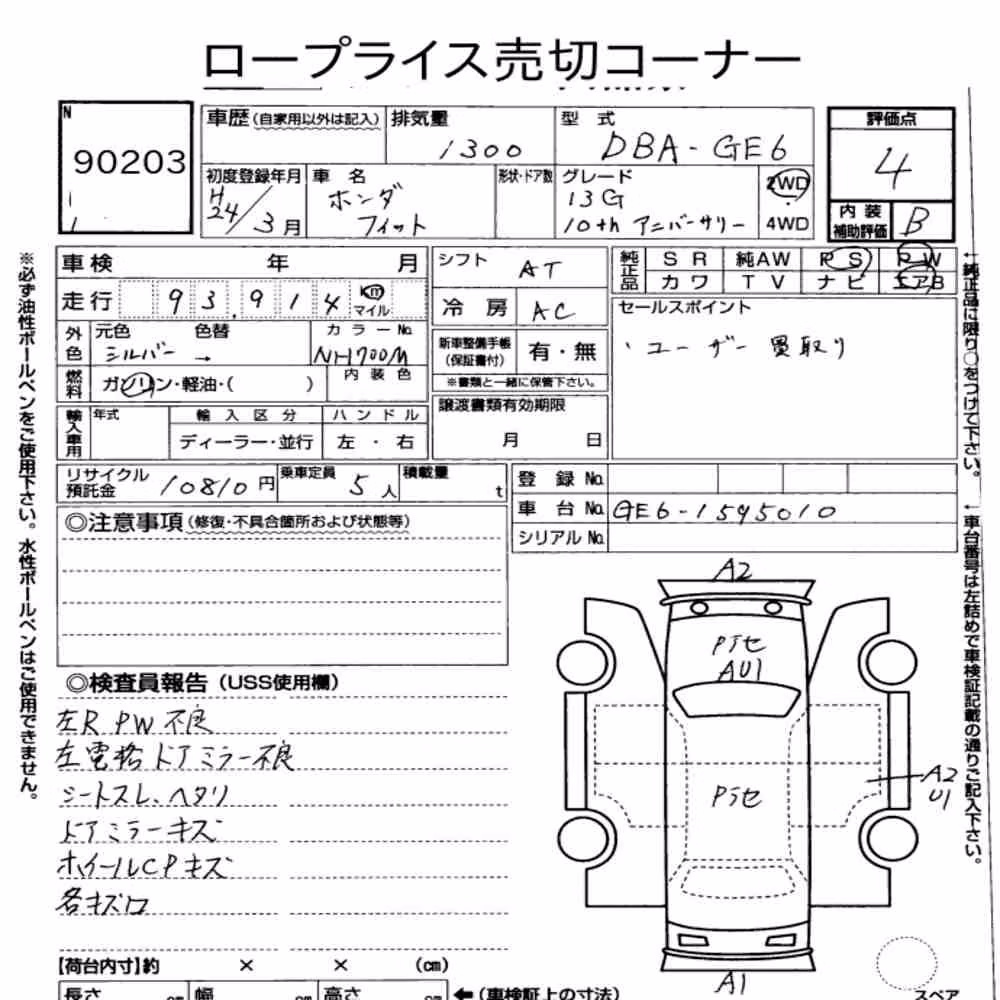 ロープライス売切コーナー
N
90203
車歴 (自家用以外は記入)
排気量
1300
型式
DBA-GE6
評価点
4
初度登録年月
H24/3月
車名
ホンダ
フィット
形状・ドア数
グレード
13G
10th アニバーサリー
2WD
4WD
内装
補助評価
B
車検 年 月
走行 93,914 km
マイル
外色
元色 色替
シルバー →
カラーNo.
NH700M
燃料
ガソリン・軽油・( )
内装色
輸入車用
年式
輸入区分
ディーラー・並行
ハンドル
左・右
シフト
AT
冷房
AC
新車整備手帳
(保証書付)
有・無
※書類と一緒に保管下さい。
譲渡書類有効期限
月 日
純正品
SR 純AW PS PW
カワ TV ナビ エアB
セールスポイント
・ユーザー買取り
リサイクル
預託金
10810円
乗車定員
5人
積載量
t
登録No.
車台No.
GE6-1595010
シリアルNo.
◎注意事項(修復・不具合箇所および状態等)
◎検査員報告(USS使用欄)
左R PW不良
左電格ドアミラー不良
シートスレ、ヘタリ
ドアミラーキズ
ホイールCPキズ
各キズ凹
A2
Pヲセ
AU1
Pヲセ
A2
U1
A1
【荷台内寸】約 × × (cm)
長さ cm 幅 cm 高さ cm
←(車検証上の寸法)
スペア
※必ず油性ボールペンをご使用下さい。水性ボールペンはご使用できません。
←純正品に限り○をつけて下さい。
←車台番号は左詰めで車検証記載の通りご記入下さい。